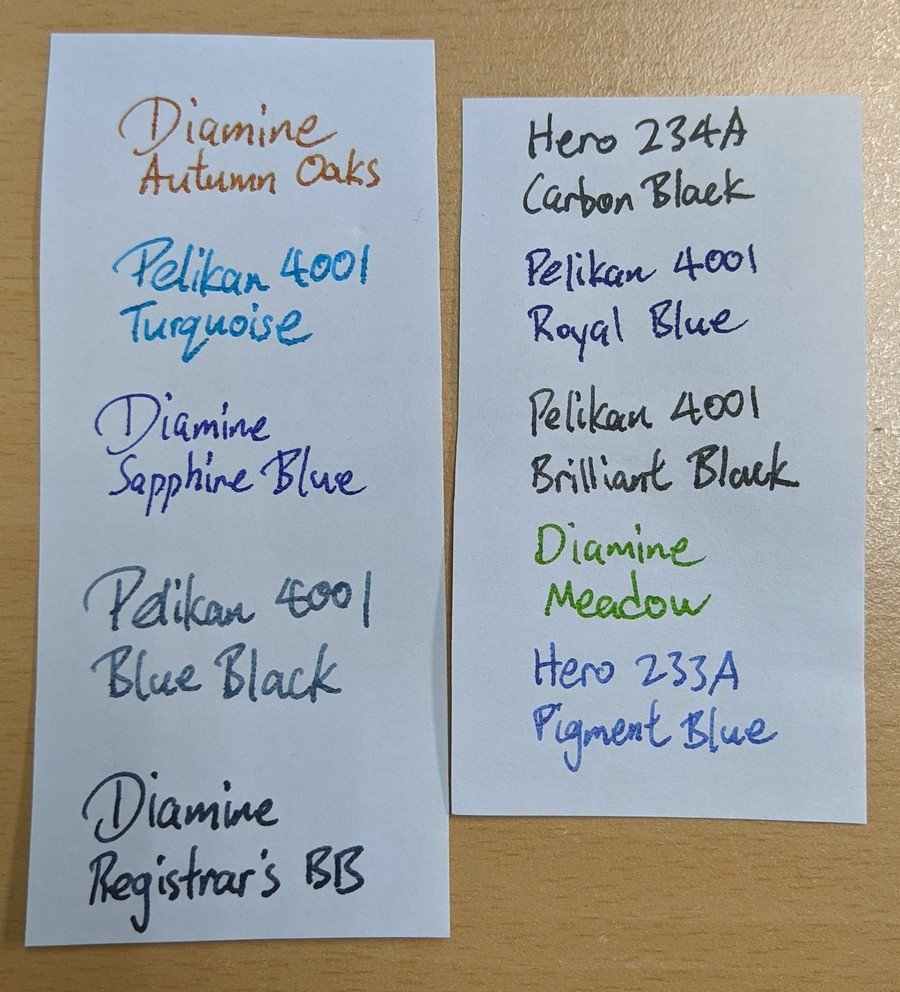 Diamine
Autumn Oaks
Pelikan 4001
Turquoise
Diamine
Sapphire Blue
Pelikan 4001
Blue Black
Diamine
Registrar's BB
Hero 234A
Carbon Black
Pelikan 4001
Royal Blue
Pelikan 4001
Brilliant Black
Diamine
Meadow
Hero 233A
Pigment Blue